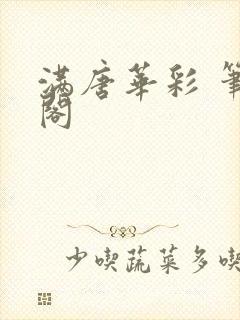 滿唐華彩 筆
閣
少喫蔬菜多喫